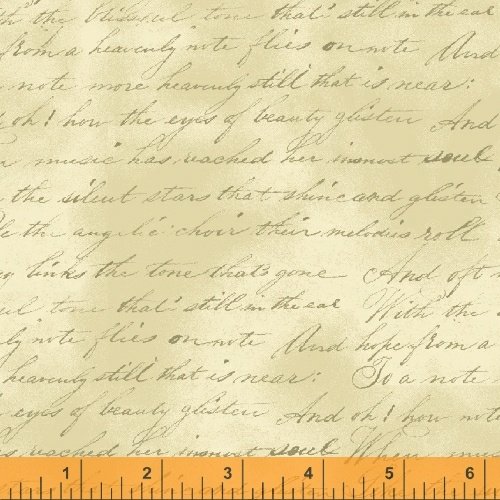 the blissful tone that's still in the ear
from a heavenly note flies on note And
note more heavenly still that is near:
oh! how the eyes of beauty glisten And
music has reached her inmost soul
the silent stars that shine and glisten
the angelic choir their melodies roll
links the tone that's gone And oft
tone that's still in the ear With the
note flies on note And hope from a
heavenly still that is near: To a note
eyes of beauty glisten And oh! how note
has reached her inmost soul When music
1 2 3 4 5 6